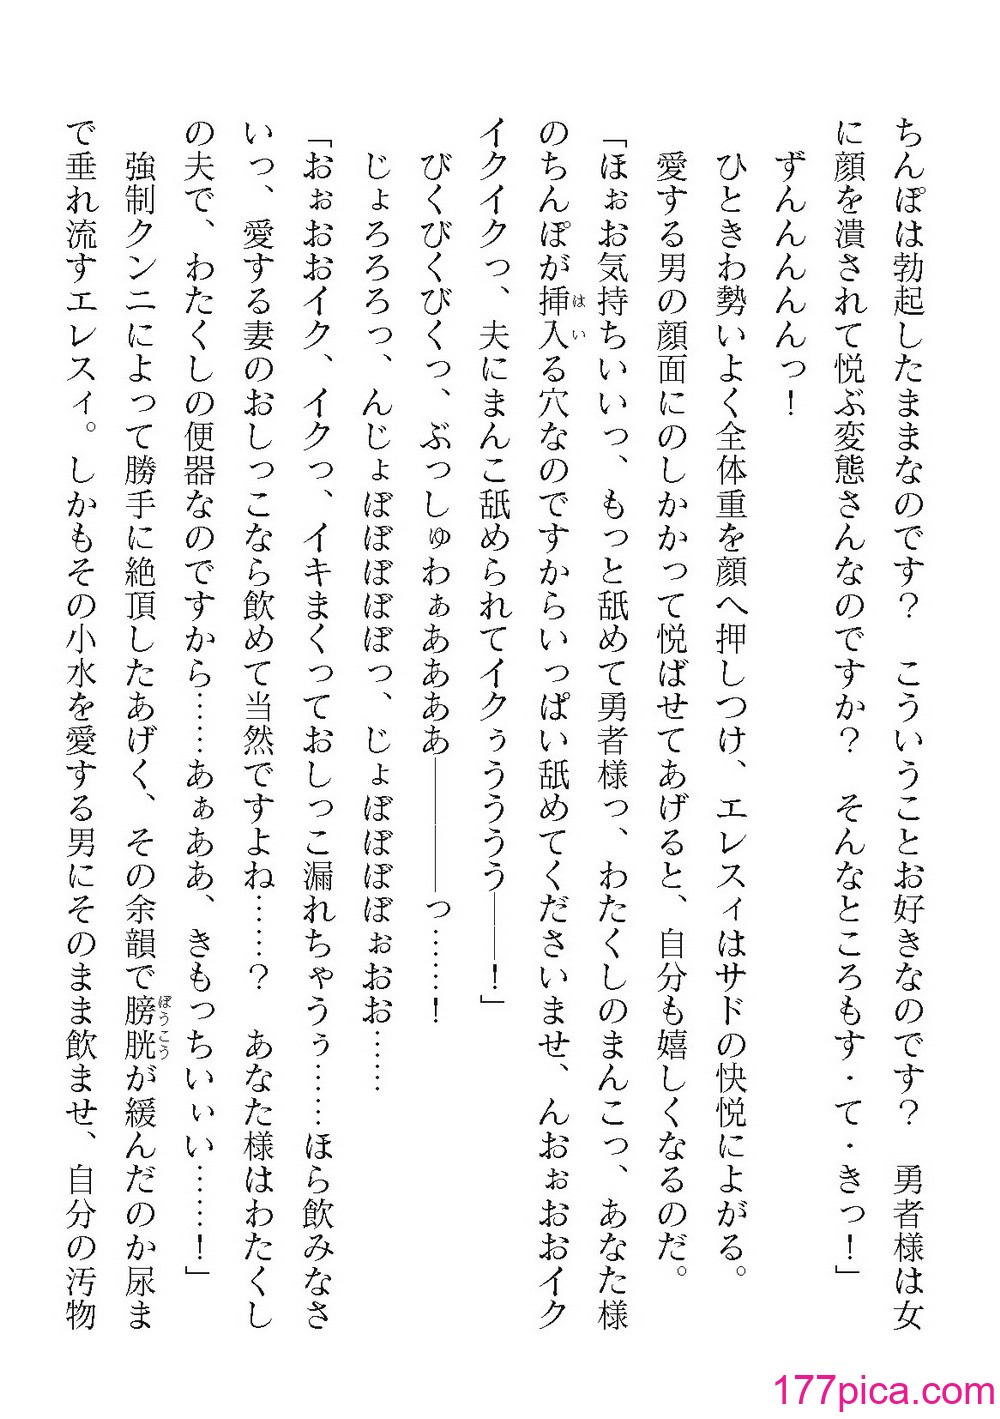 ちんぽは勃起したままなのです？　こういうことお好きなのです？　勇者様は女
に顔を潰されて悦ぶ変態さんなのですか？　そんなところもす・て・きっ！」
ずんんんんっ！
ひときわ勢いよく全体重を顔へ押しつけ、エレスィはサドの快悦によがる。
愛する男の顔面にのしかかって悦ばせてあげると、自分も嬉しくなるのだ。
「ほぉお気持ちいいっ、もっと舐めて勇者様っ、わたくしのまんこっ、あなた様
のちんぽが挿入る穴なのですからいっぱい舐めてくださいませ、んおぉおおイク
イクイクっ、夫にまんこ舐められてイクぅうううう――！」
びくびくびくっ、ぶっしゅわぁあああ――――っ……！
じょろろろっ、んじょぼぼぼぼぼっ、じょぼぼぼぼぉおお……
「おぉおおイク、イクっ、イキまくっておしっこ漏れちゃうぅ……ほら飲みなさ
いっ、愛する妻のおしっこなら飲めて当然ですよね……？　あなた様はわたくし
の夫で、わたくしの便器なのですから……あぁああ、きもっちいぃい……！」
強制クンニによって勝手に絶頂したあげく、その余韻で膀胱が緩んだのか尿ま
で垂れ流すエレスィ。しかもその小水を愛する男にそのまま飲ませ、自分の汚物
177pica.com